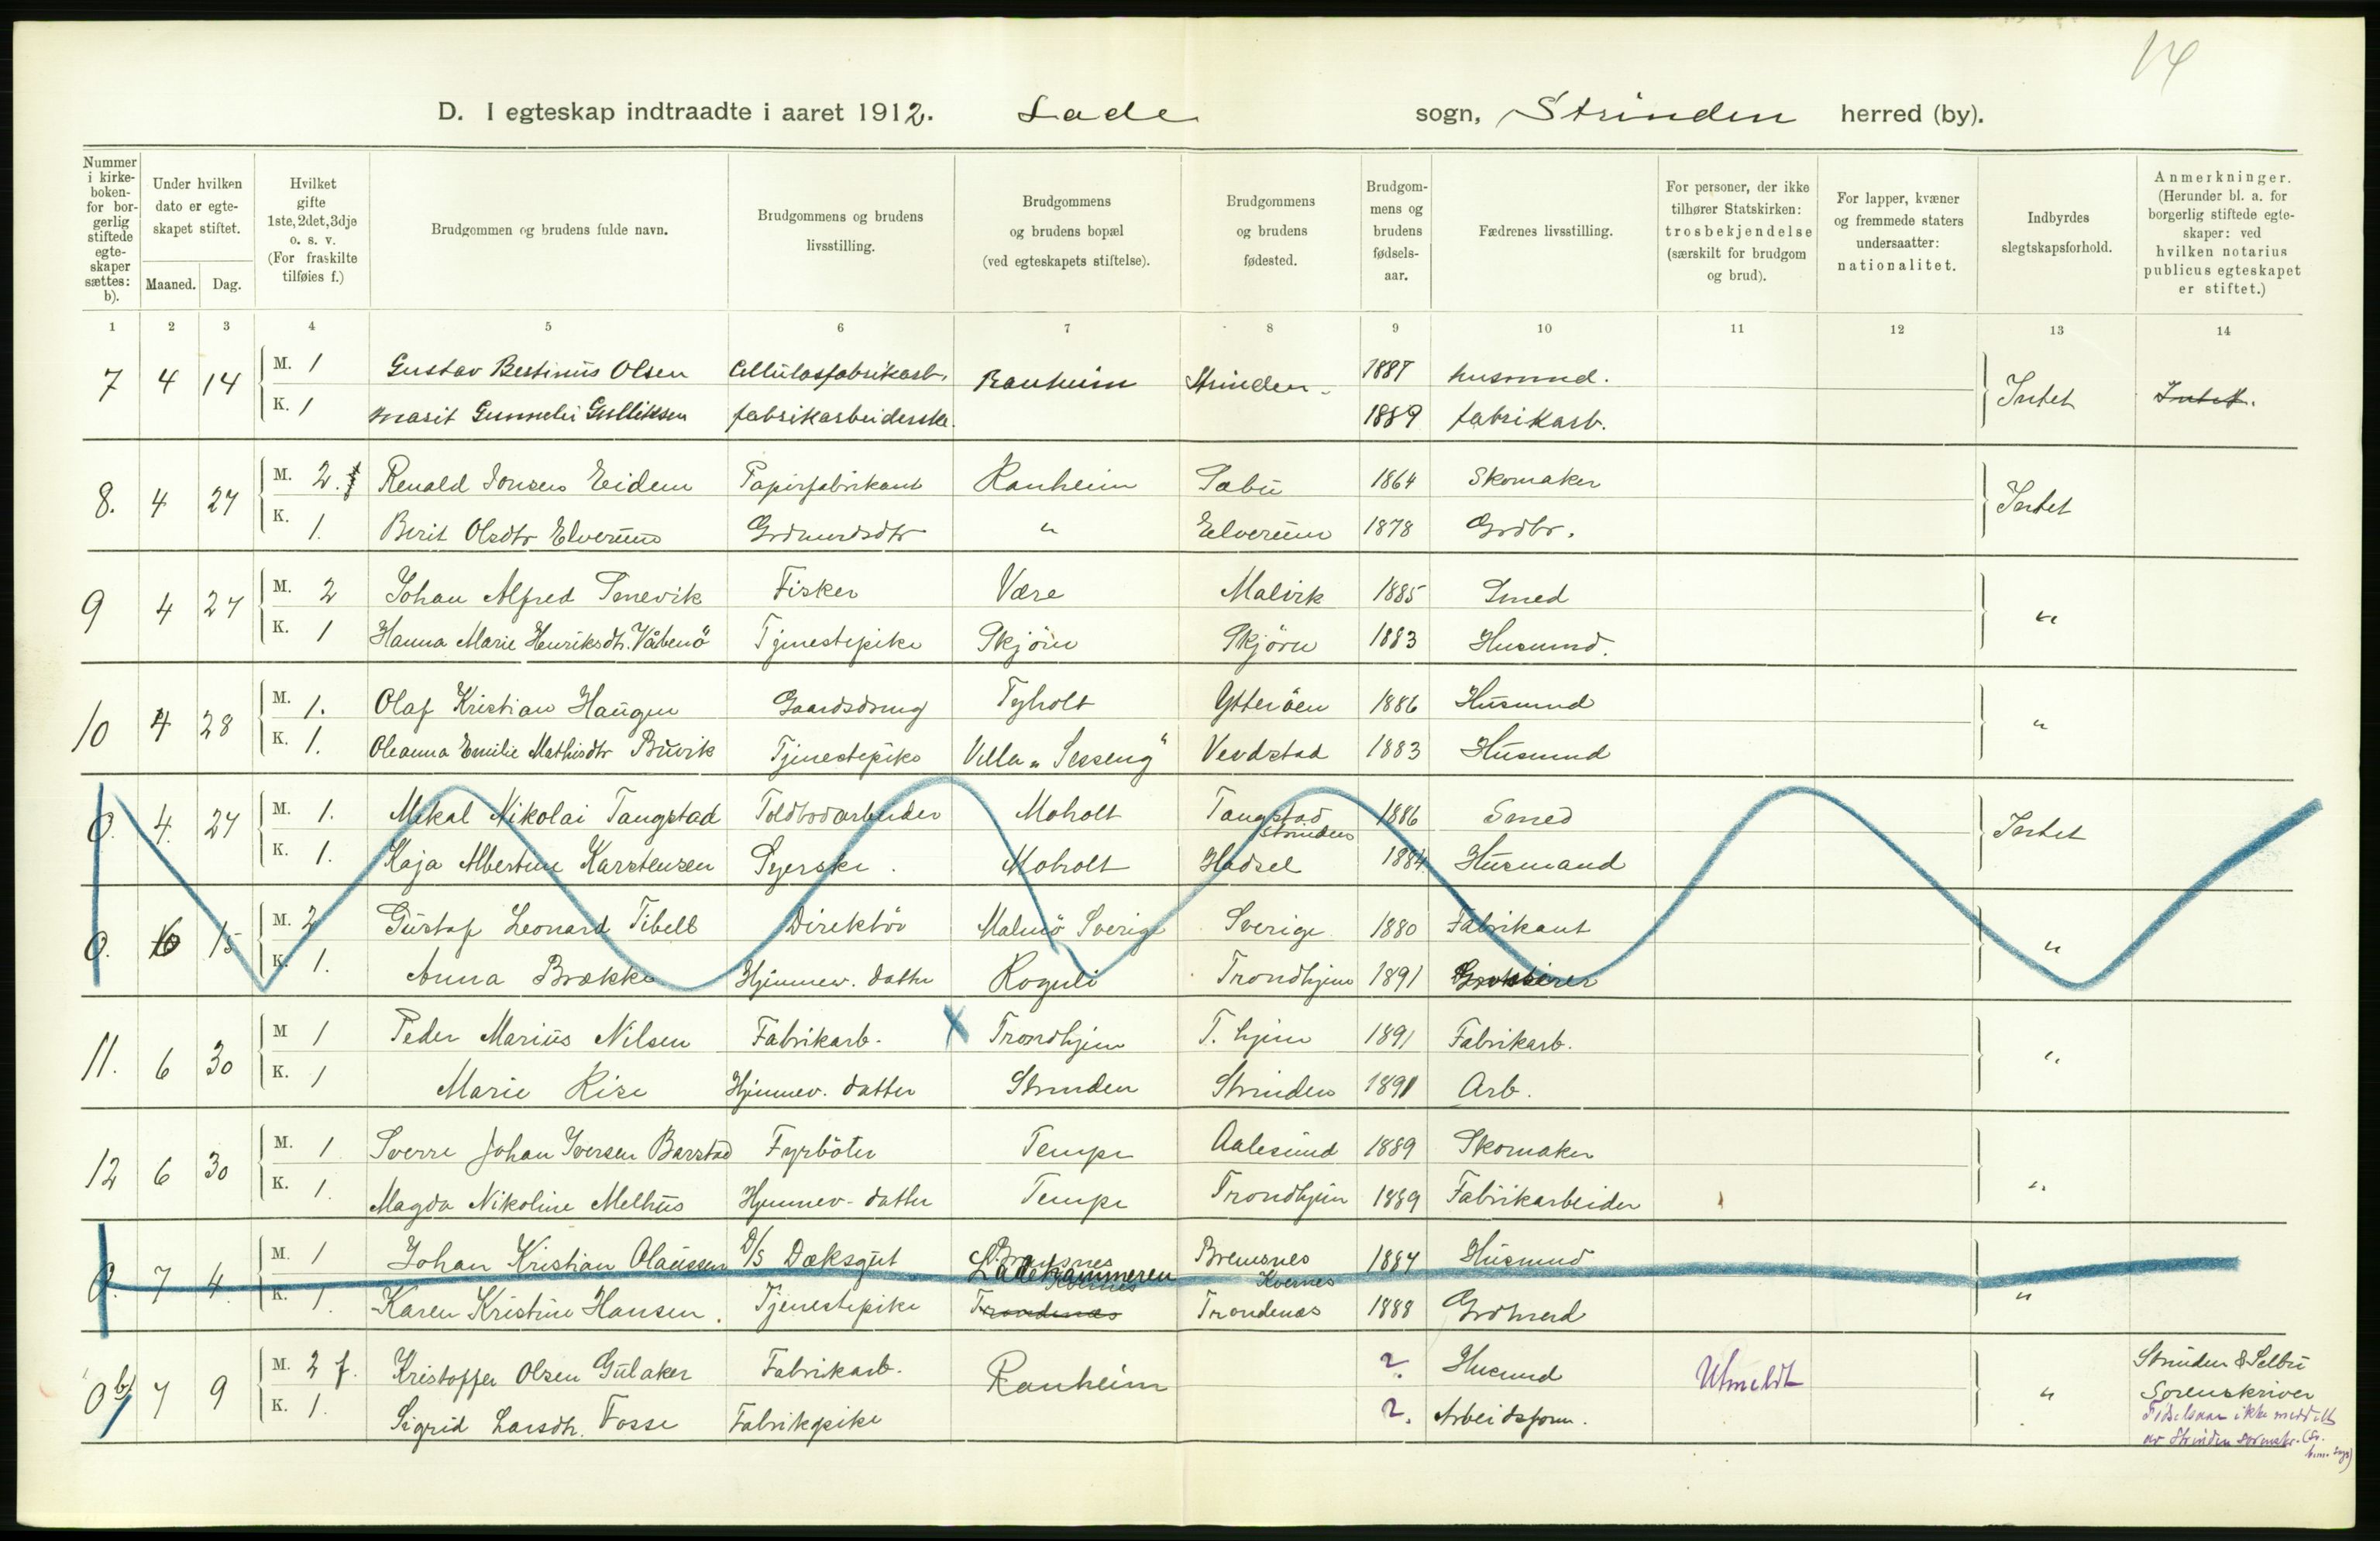 14
D. I egteskap indtraadte i aaret 1912. Lade sogn, Strinden herred (by).
Nummer i kirke-boken- for bor-gerlig stiftede egte-skaper sættes: b).
Under hvilken dato er egte-skapet stiftet.
Maaned. Dag.
Hvilket gifte 1ste, 2det, 3dje o. s. v. (For fraskilte tilføies f.)
Brudgommen og brudens fulde navn.
Brudgommens og brudens livsstilling.
Brudgommens og brudens bopæl (ved egteskapets stiftelse).
Brudgommens og brudens fødested.
Brudgom-mens og brudens fødsels-aar.
Fædrenes livsstilling.
For personer, der ikke tilhører Statskirken: trosbekjendelse (særskilt for brudgom og brud).
For lapper, kvæner og fremmede staters undersaatter: nationalitet.
Indbyrdes slegtskapsforhold.
Anmerkninger. (Herunder bl. a. for borgerlig stiftede egte-skaper: ved hvilken notarius publicus egteskapet er stiftet.)
1 2 3 4 5 6 7 8 9 10 11 12 13 14
7 4 14 M. 1 Gustav Bestinus Olsen Cellulosfabrikarb. Ranheim Strinden 1887 husmnd. Intet Intet.
K. 1 Marit Gunnelie Gulliksen fabrikarbeiderske. 1889 fabrikarb.
8. 4 27 M. 2. Renald Jonsen Eidem Papirfabrikant Ranheim Sælbu 1864 Skomaker Intet
K. 1. Berit Olsdtr Elverum Grdmndsdtr " Elverum 1878 Grdbr.
9 4 27 M. 2 Johan Alfred Svevik Fisker Være Malvik 1885 Smed "
K. 1 Hanna Marie Henriksdtr. Våbenö Tjenestepike Skjörn Skjörn 1883 Husmnd.
10 4 28 M. 1. Olaf Kristian Haugen Gaardsdreng Tyholt Ytteröen 1886 Husmnd "
K. 1. Oleanna Emilie Mathisdtr Buvik Tjenestepike Villa "Sesseng" Verdstad 1883 Husmnd
0. 4. 27 M. 1. Mekal Nikolai Tangstad Toldbodarbeider Moholt Tangstad Strinden 1886 Smed Intet
K. 1. Kaja Albertine Karstensen Syerske. Moholt Hadsel 1884. Husmand
0. 6 15 M. 2 Gustaf Leonard Tibell Direktör Malmö Sverige Sverige 1880 Fabrikant "
K. 1. Anna Brække Hjemmev. datter Roguli Trondhjem 1891
11. 6 30 M 1 Peder Marius Nilsen Fabrikarb. x Trondhjem T. hjem 1891 Fabrikarb. "
K. 1 Marie Rise Hjemmev. datter Strinden Strinden 1891 Arb.
12 6 30 M. 1 Sverre Johan Iversen Barstad Fyrböter Tempe Aalesund 1889 Skomaker "
K. 1. Magda Nikoline Melhus Hjemmev. datter Tempe Trondhjem 1889 Fabrikarbeider
0. 7 4. M. 1 Johan Kristian Olaussen D/S Dæksgut Bremsnes Kvernes Bremsnes Kvernes 1884 Husmnd "
K. 1. Karen Kristine Hansen. Tjenestepike Ladehammeren Trondenæs Trondenæs 1888 Grdmnd
0 b) 7 9 M. 2 f. Kristoffer Olsen Gulaker Fabrikarb. Ranheim ? Husmnd Utmeldt " Strinden & Selbu
K. 1. Sigrid Larsdtr. Fosse Fabrikpike ?. Arbeidsform. Sorenskriver
Födselsaar ikke meddelt
av Strinden sorenskr.